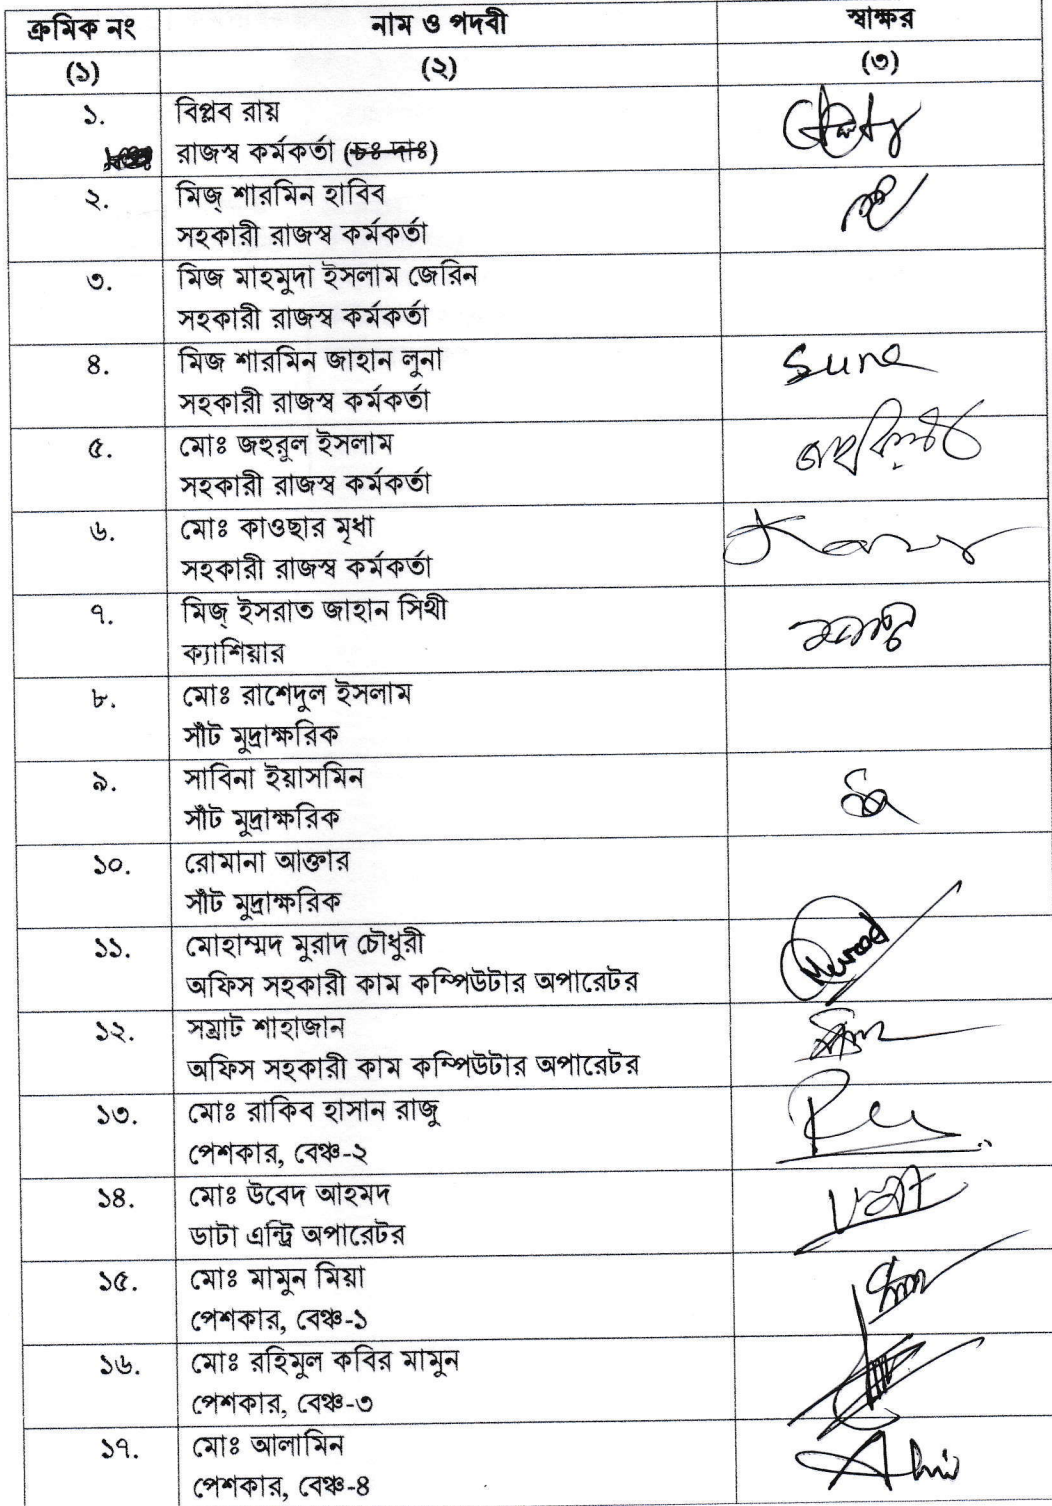 ক্রমিক নং নাম ও পদবী স্বাক্ষর
(১) (২) (৩)
১. বিপ্লব রায়
রাজস্ব কর্মকর্তা (চঃ দাঃ)
২. মিজ্ শারমিন হাবিব
সহকারী রাজস্ব কর্মকর্তা
৩. মিজ মাহমুদা ইসলাম জেরিন
সহকারী রাজস্ব কর্মকর্তা
৪. মিজ শারমিন জাহান লুনা
সহকারী রাজস্ব কর্মকর্তা
৫. মোঃ জহুরুল ইসলাম
সহকারী রাজস্ব কর্মকর্তা
৬. মোঃ কাওছার মৃধা
সহকারী রাজস্ব কর্মকর্তা
৭. মিজ্ ইসরাত জাহান সিথী
ক্যাশিয়ার
৮. মোঃ রাশেদুল ইসলাম
সাঁট মুদ্রাক্ষরিক
৯. সাবিনা ইয়াসমিন
সাঁট মুদ্রাক্ষরিক
১০. রোমানা আক্তার
সাঁট মুদ্রাক্ষরিক
১১. মোহাম্মদ মুরাদ চৌধুরী Murad
অফিস সহকারী কাম কম্পিউটার অপারেটর
১২. সম্রাট শাহাজান
অফিস সহকারী কাম কম্পিউটার অপারেটর
১৩. মোঃ রাকিব হাসান রাজু
পেশকার, বেঞ্চ-২
১৪. মোঃ উবেদ আহমদ
ডাটা এন্ট্রি অপারেটর
১৫. মোঃ মামুন মিয়া
পেশকার, বেঞ্চ-১
১৬. মোঃ রহিমুল কবির মামুন
পেশকার, বেঞ্চ-৩
১৭. মোঃ আলামিন
পেশকার, বেঞ্চ-৪